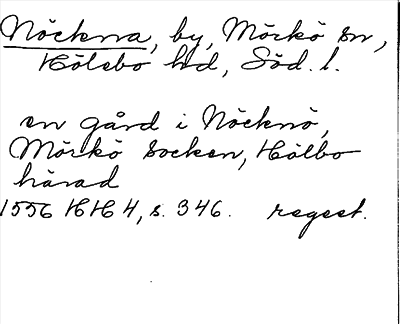 Nöckna, by, Mörkö sn,
Hölebo hd, Söd. l.
en gård i Nöcknö,
Mörkö socken, Hölbo
härad
1556 HH 4, s. 346. regest.